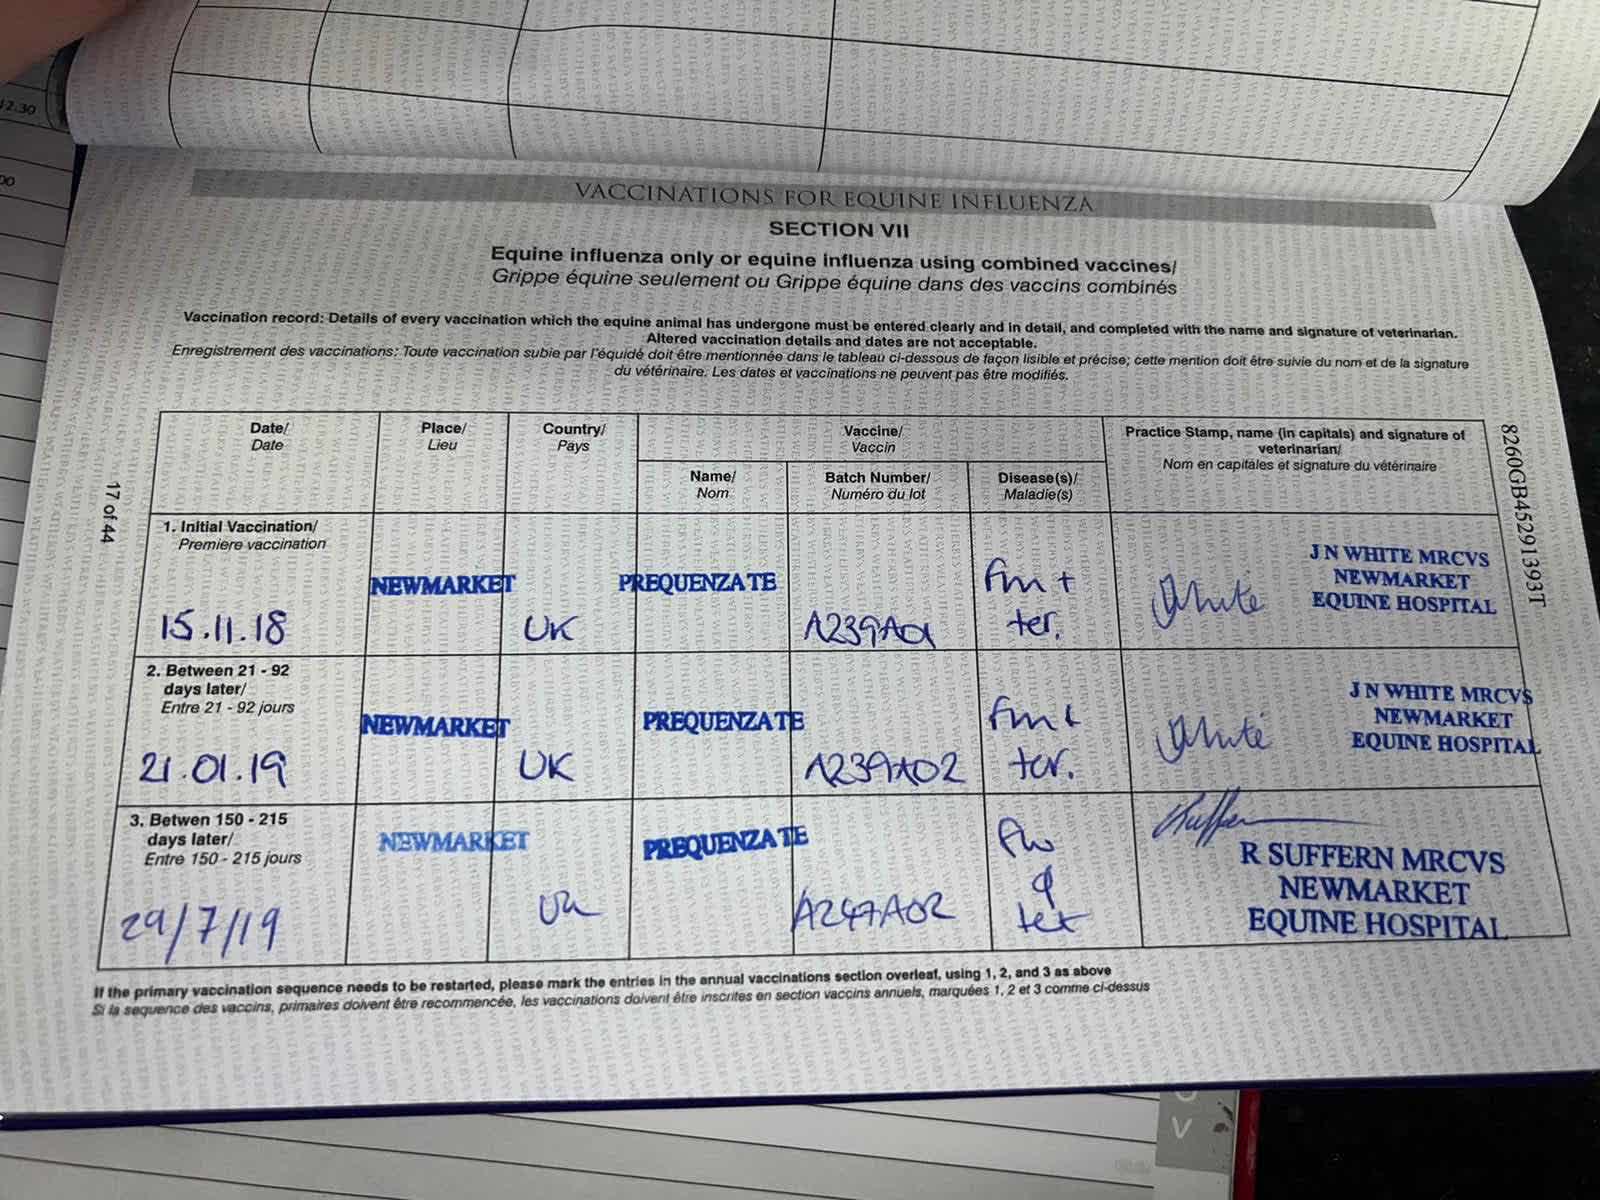 12.30
00
VACCINATIONS FOR EQUINE INFLUENZA
SECTION VII
Equine influenza only or equine influenza using combined vaccines/
Grippe équine seulement ou Grippe équine dans des vaccins combinés
Vaccination record: Details of every vaccination which the equine animal has undergone must be entered clearly and in detail, and completed with the name and signature of veterinarian.
Altered vaccination details and dates are not acceptable.
Enregistrement des vaccinations: Toute vaccination subie par l'équidé doit être mentionnée dans le tableau ci-dessous de façon lisible et précise; cette mention doit être suivie du nom et de la signature
du vétérinaire. Les dates et vaccinations ne peuvent pas être modifiés.
Date/
Date
Place/
Lieu
Country/
Pays
Vaccine/
Vaccin
Name/
Nom
Batch Number/
Numéro du lot
Disease(s)/
Maladie(s)
Practice Stamp, name (in capitals) and signature of
veterinarian/
Nom en capitales et signature du vétérinaire
1. Initial Vaccination/
Premiere vaccination
15.11.18
NEWMARKET
UK
PREQUENZA TE
A239A01
ter.
White
J N WHITE MRCVS
NEWMARKET
EQUINE HOSPITAL
2. Between 21 - 92
days later/
Entre 21 - 92 jours
21.01.19
NEWMARKET
UK
PREQUENZA TE
A239A02
White
J N WHITE MRCVS
NEWMARKET
EQUINE HOSPITAL
3. Betwen 150 - 215
days later/
Entre 150 - 215 jours
29/7/19
NEWMARKET
UK
PREQUENZA TE
A247A02
tet
Suffern
R SUFFERN MRCVS
NEWMARKET
EQUINE HOSPITAL
If the primary vaccination sequence needs to be restarted, please mark the entries in the annual vaccinations section overleaf, using 1, 2, and 3 as above
Si la sequence des vaccins, primaires doivent être recommencée, les vaccinations doivent être inscrites en section vaccins annuels, marquées 1, 2 et 3 comme ci-dessus
17 of 44
8260GB45291393T